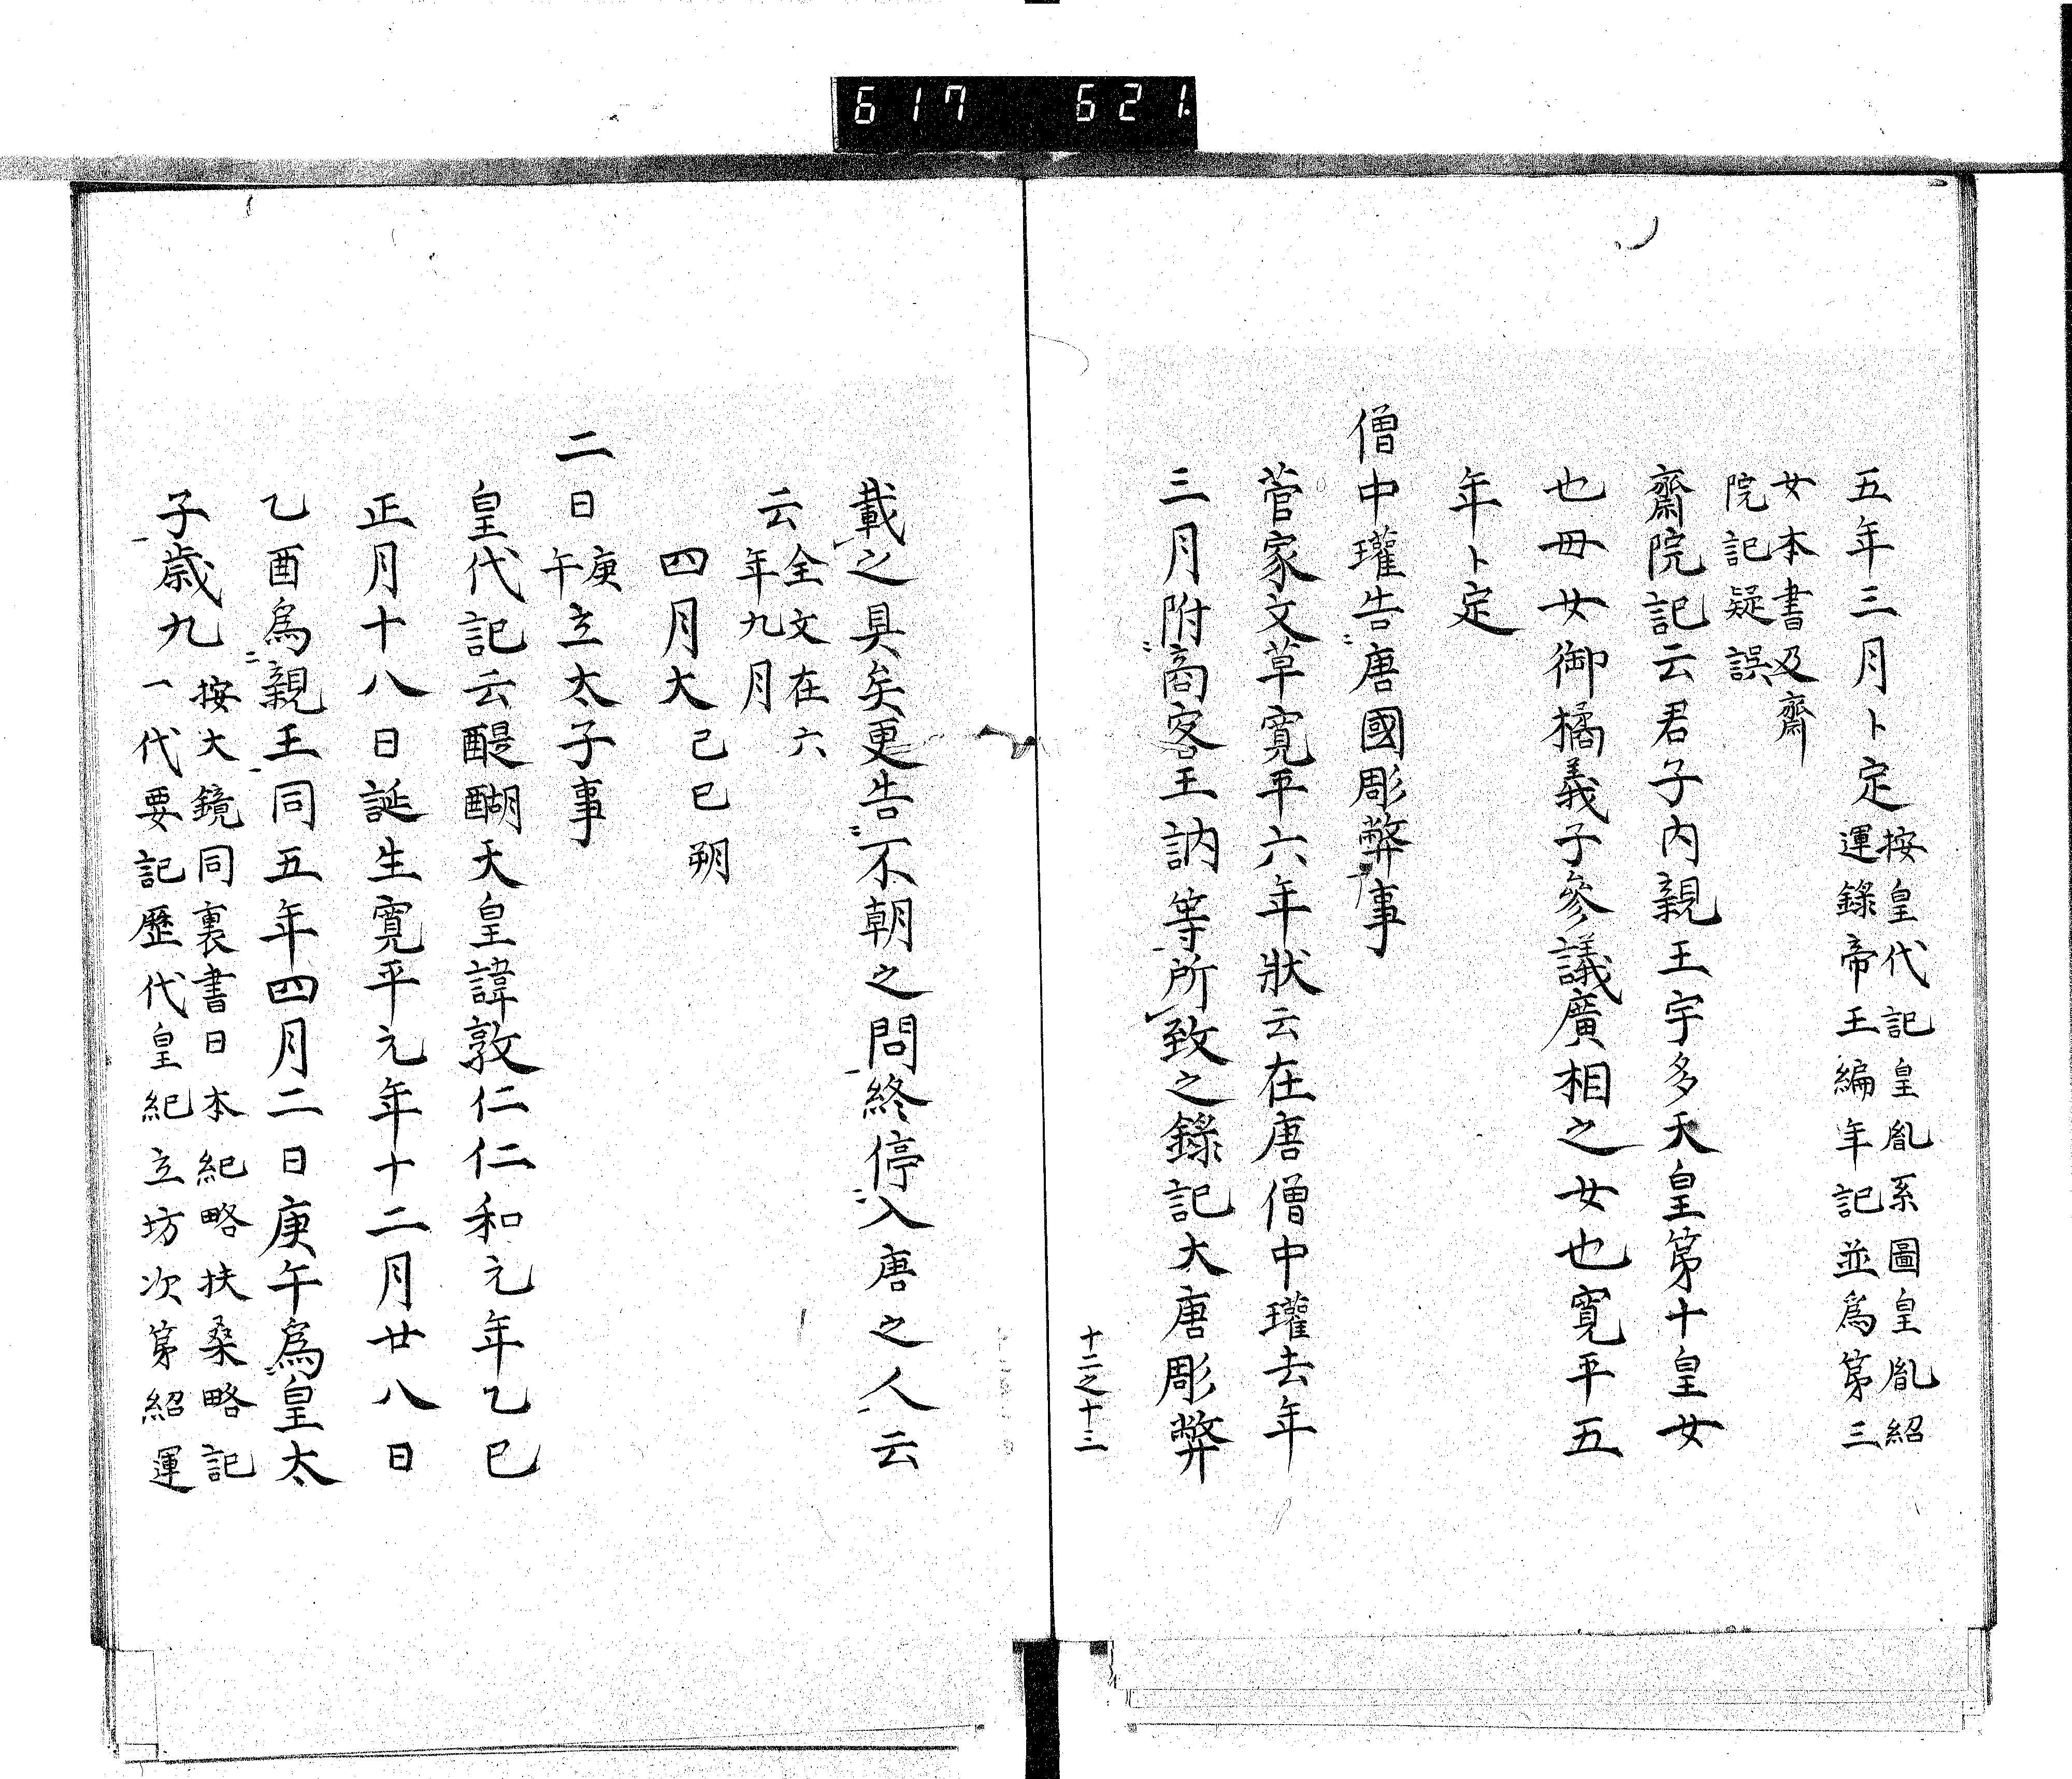 617 621
五年三月卜定按皇代記皇胤系圖皇胤紹
運錄帝王編年記並爲第三
女本書及齋
院記疑誤
齋院記云君子内親王宇多天皇第十皇女
也毋女御橘義子參議廣相之女也寛平五
年卜定
僧中瓘告唐國彫弊事
菅家文草寛平六年狀云在唐僧中瓘去年
三月附商客王訥等所致之錄記大唐彫弊
十二之十三
載之具矣更告不朝之問終停入唐之人云
云全文在六
年九月
四月大己巳朔
二日庚午立太子事
皇代記云醍醐天皇諱敦仁仁和元年乙巳
正月十八日誕生寛平元年十二月廿八日
乙酉爲親王同五年四月二日庚午爲皇太
子歲九按大鏡同裏書日本紀略扶桑略記
一代要記歷代皇紀立坊次第紹運